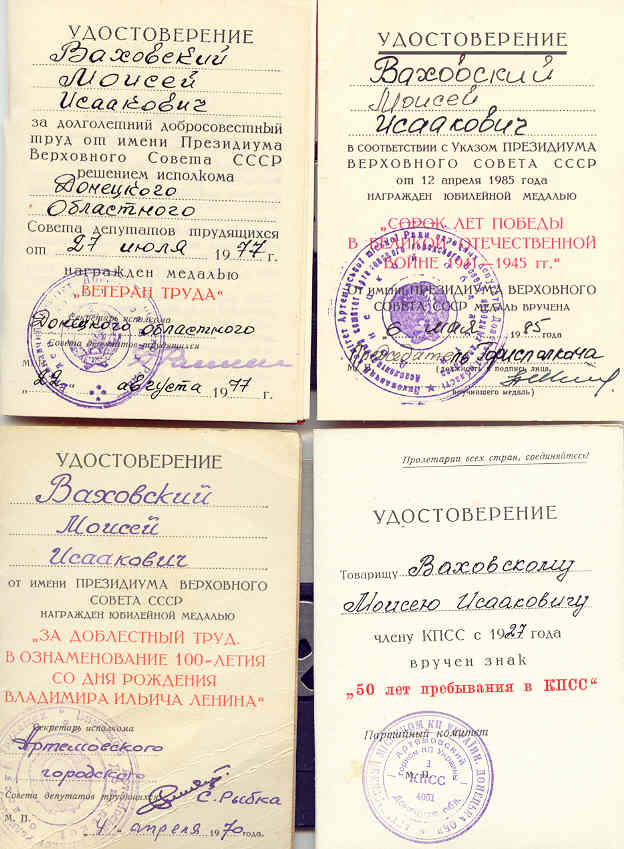 УДОСТОВЕРЕНИЕ
Ваховский
Моисей
Исаакович
за долголетний добросовестный
труд от имени Президиума
Верховного Совета СССР
решением исполкома
Донецкого
Областного
Совета депутатов трудящихся
от 27 июля 1977 г.
награжден медалью
„ВЕТЕРАН ТРУДА“
Секретарь исполкома
Донецкого областного
Совета депутатов трудящихся
М.
„22“ августа 1977 г.
УДОСТОВЕРЕНИЕ
Ваховский
Моисей
Исаакович
В СООТВЕТСТВИИ С УКАЗОМ ПРЕЗИДИУМА
ВЕРХОВНОГО СОВЕТА СССР
от 12 апреля 1985 года
НАГРАЖДЕН ЮБИЛЕЙНОЙ МЕДАЛЬЮ
„СОРОК ЛЕТ ПОБЕДЫ
В ВЕЛИКОЙ ОТЕЧЕСТВЕННОЙ
ВОЙНЕ 1941—1945 гг.“
ОТ ИМЕНИ ПРЕЗИДИУМА ВЕРХОВНОГО
СОВЕТА СССР МЕДАЛЬ ВРУЧЕНА
6 мая 1985 г.
Председатель Горисполкома
М. (должность и подпись лица,
вручившего медаль)
УДОСТОВЕРЕНИЕ
Ваховский
Моисей
Исаакович
ОТ ИМЕНИ ПРЕЗИДИУМА ВЕРХОВНОГО
СОВЕТА СССР
НАГРАЖДЕН ЮБИЛЕЙНОЙ МЕДАЛЬЮ
„ЗА ДОБЛЕСТНЫЙ ТРУД.
В ОЗНАМЕНОВАНИЕ 100-ЛЕТИЯ
СО ДНЯ РОЖДЕНИЯ
ВЛАДИМИРА ИЛЬИЧА ЛЕНИНА“
Секретарь исполкома
Артемовского
городского
Совета депутатов трудящихся С. Рыбка
М. П. 4 апреля 1970 года.
Пролетарии всех стран, соединяйтесь!
УДОСТОВЕРЕНИЕ
Товарищу Ваховскому
Моисею Исааковичу
члену КПСС с 1927 года
вручен знак
„50 лет пребывания в КПСС“
Партийный комитет
Артемовский
горком КП Украины
М. П.
КПСС
4001
Донецкая обл.